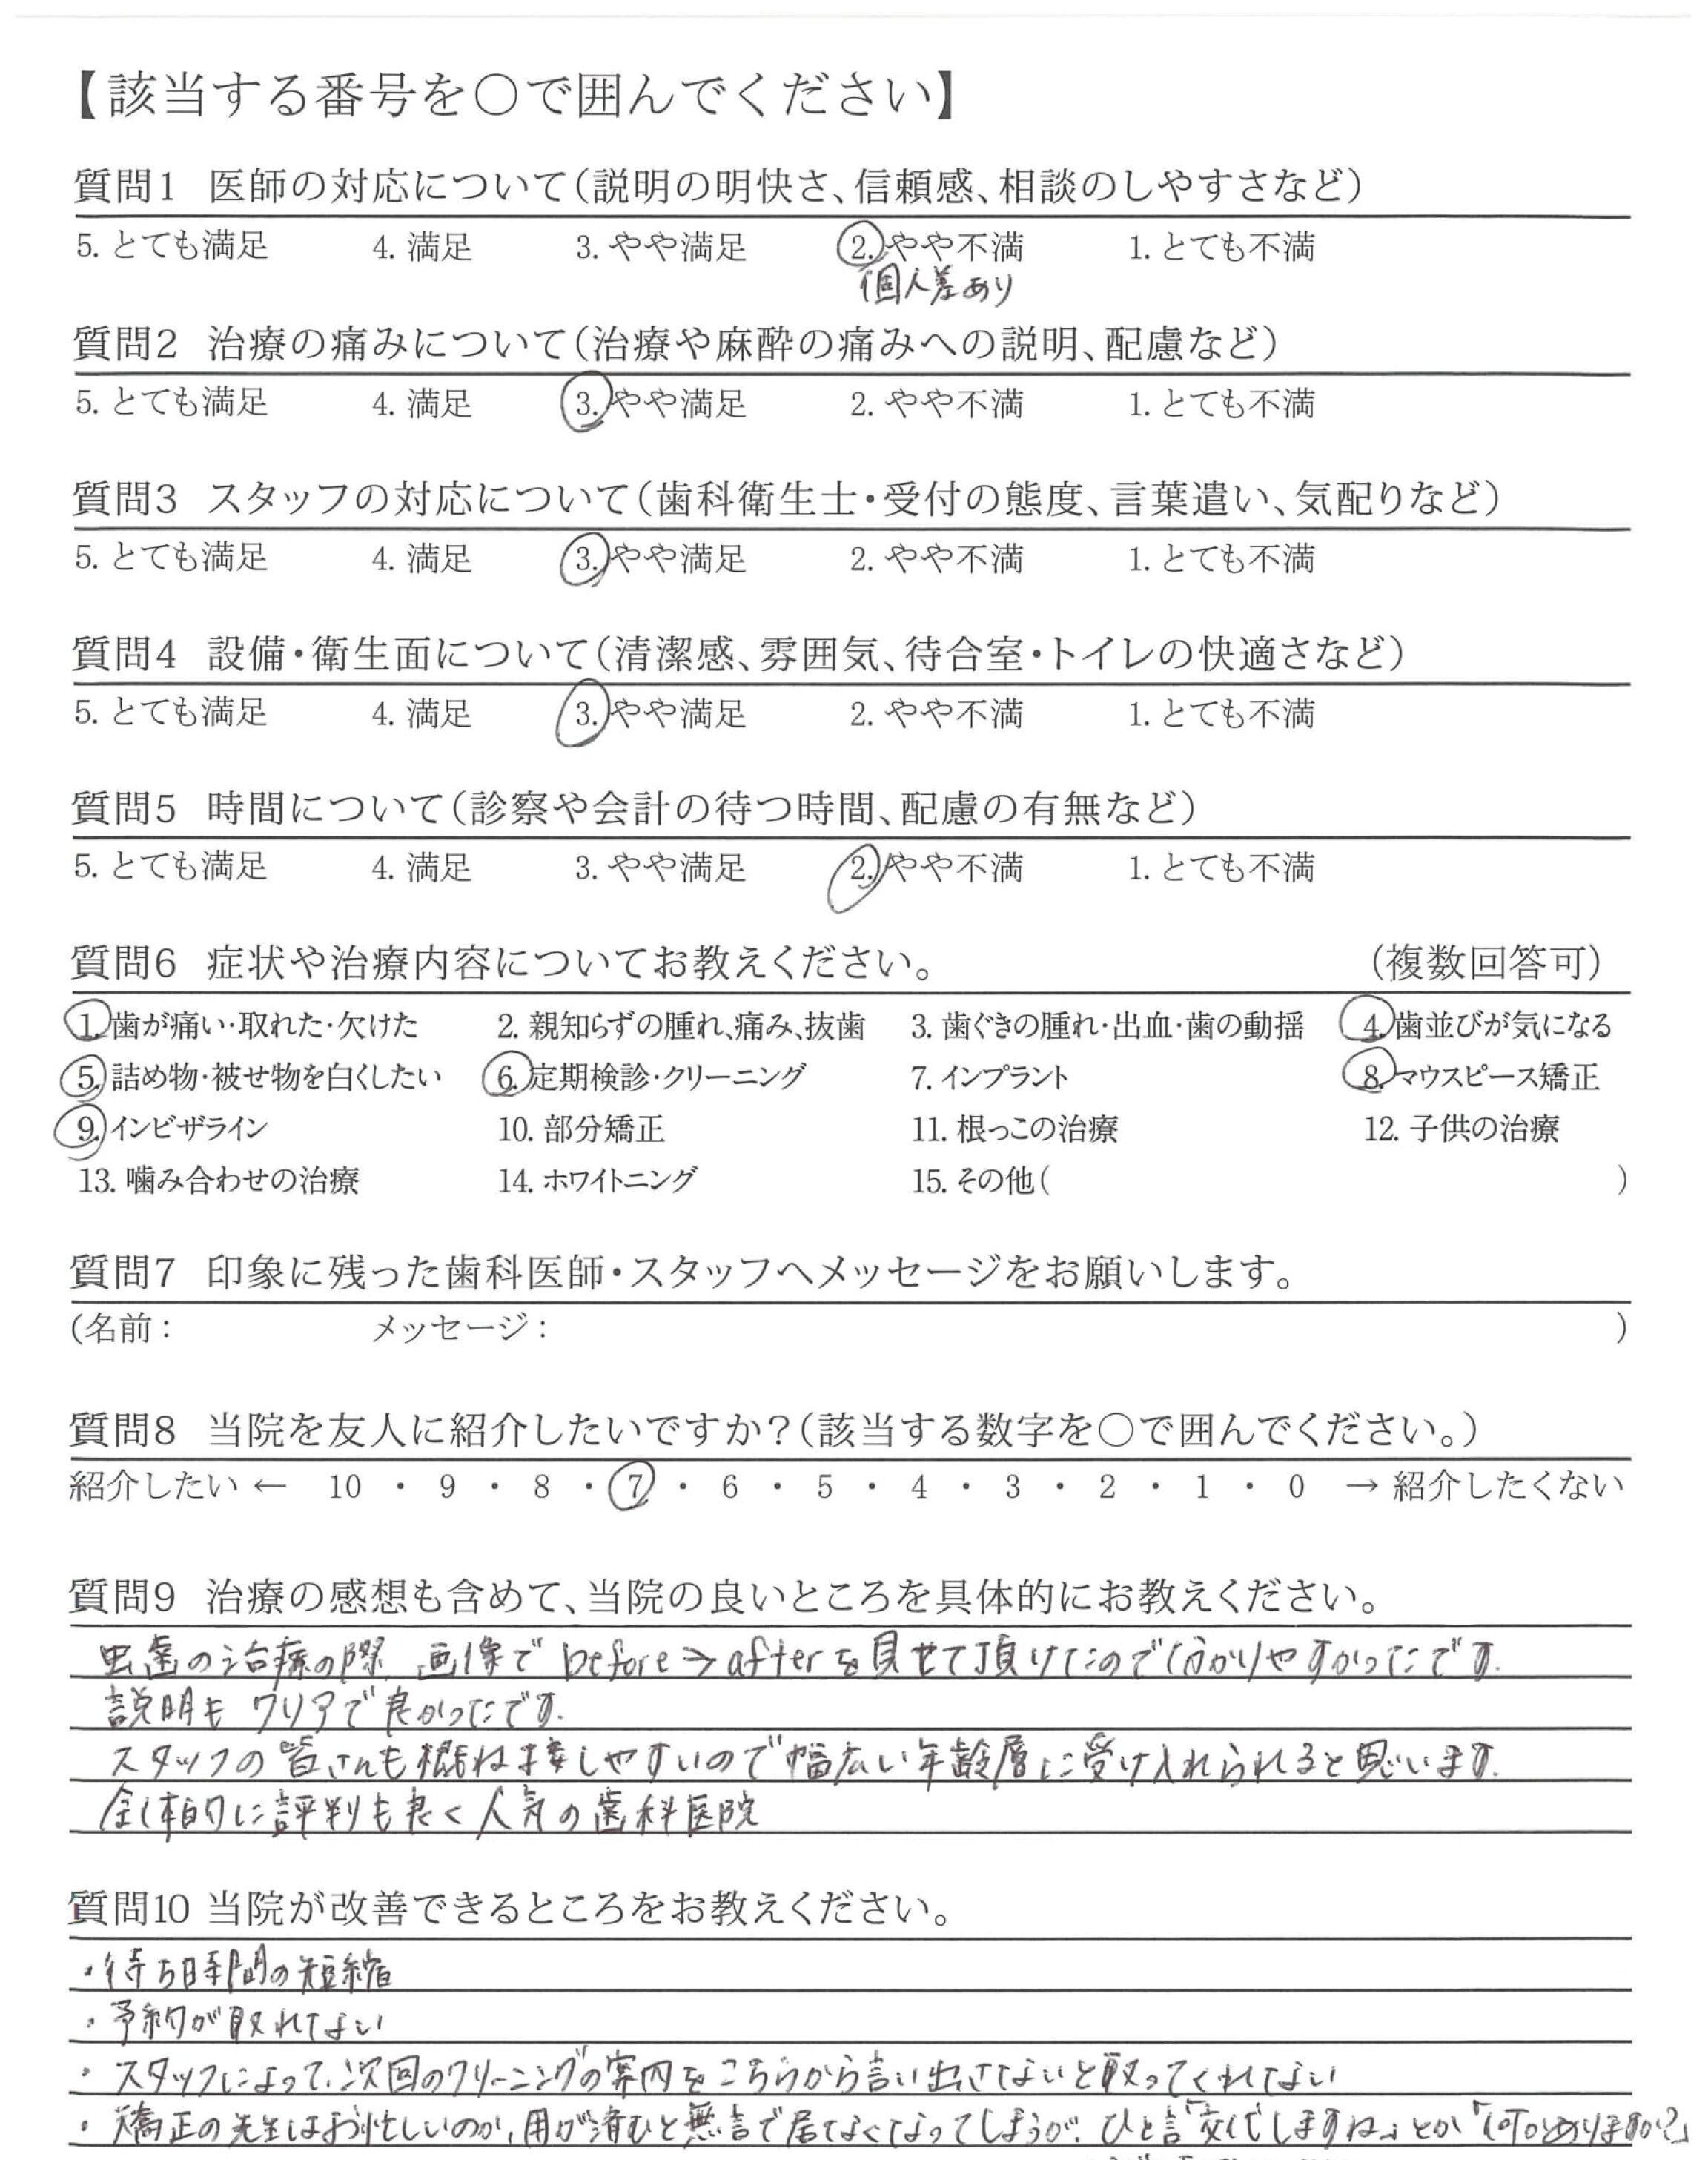 【該当する番号を○で囲んでください】
質問1 医師の対応について(説明の明快さ、信頼感、相談のしやすさなど)
5. とても満足 4. 満足 3. やや満足 2. やや不満 1. とても不満
個人差あり
質問2 治療の痛みについて(治療や麻酔の痛みへの説明、配慮など)
5. とても満足 4. 満足 3. やや満足 2. やや不満 1. とても不満
質問3 スタッフの対応について(歯科衛生士・受付の態度、言葉遣い、気配りなど)
5. とても満足 4. 満足 3. やや満足 2. やや不満 1. とても不満
質問4 設備・衛生面について(清潔感、雰囲気、待合室・トイレの快適さなど)
5. とても満足 4. 満足 3. やや満足 2. やや不満 1. とても不満
質問5 時間について(診察や会計の待つ時間、配慮の有無など)
5. とても満足 4. 満足 3. やや満足 2. やや不満 1. とても不満
質問6 症状や治療内容についてお教えください。 (複数回答可)
1. 歯が痛い・取れた・欠けた 2. 親知らずの腫れ、痛み、抜歯 3. 歯ぐきの腫れ・出血・歯の動揺 4. 歯並びが気になる
5. 詰め物・被せ物を白くしたい 6. 定期検診・クリーニング 7. インプラント 8. マウスピース矯正
9. インビザライン 10. 部分矯正 11. 根っこの治療 12. 子供の治療
13. 噛み合わせの治療 14. ホワイトニング 15. その他( )
質問7 印象に残った歯科医師・スタッフへメッセージをお願いします。
(名前: メッセージ: )
質問8 当院を友人に紹介したいですか?(該当する数字を○で囲んでください。)
紹介したい ← 10 ・ 9 ・ 8 ・ 7 ・ 6 ・ 5 ・ 4 ・ 3 ・ 2 ・ 1 ・ 0 → 紹介したくない
質問9 治療の感想も含めて、当院の良いところを具体的にお教えください。
虫歯の治療の際、画像で before→afterを見せて頂けたので分かりやすかったです.
説明も クリアで良かったです.
スタッフの皆さんも概ね接しやすいので幅広い年齢層に受け入れられると思います.
全体的に評判も良く人気の歯科医院
質問10 当院が改善できるところをお教えください。
・待ち時間の短縮
・予約が取れない
・スタッフによって、次回のクリーニングの案内をこちらから言い出さないと取ってくれない
・矯正の先生はお忙しいのか、用が済むと無言で居なくなってしまうが、ひと言「交代しますね」とか「何かありますか?」